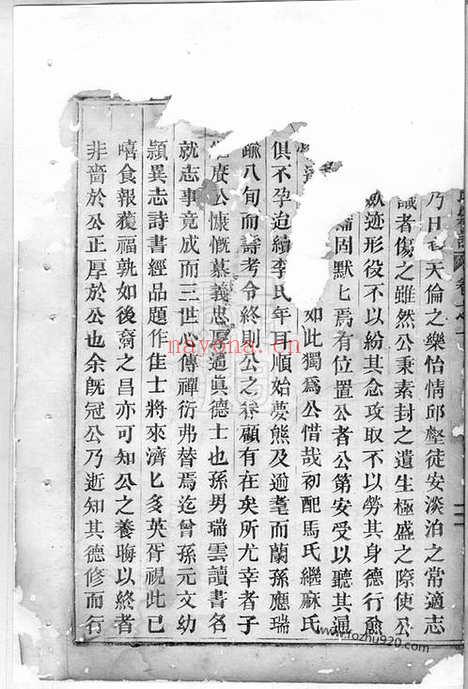 乃日教天倫之樂怡情邱壑徒安淡泊之常適志
識者傷之雖然公秉素封之遺生極盛之際使公
斂迹形役不以紛其念攻取不以勞其身德行愈
固默匕焉有位置公者公第安受以聽其通
如此獨爲公惜哉初配馬氏繼麻氏
俱不孕迨續李氏年耳順始夢熊及適耄而蘭孫應瑞
躋八旬而壽考令終則公之眷顧有在矣所尤幸者子
度公慷慨慕義忠厚適真德士也孫男瑞雲讀書名
就志事竟成而三世心傳禪衍弗替焉迄曾孫元文幼
頴異志詩書經品題作佳士將來濟匕多英胥視此已
嘻食報獲福孰如後裔之昌亦可知公之養晦以終者
非嗇於公正厚於公也余旣冠公乃逝知其德修而行
mayona.cn
www.rozhu920.com